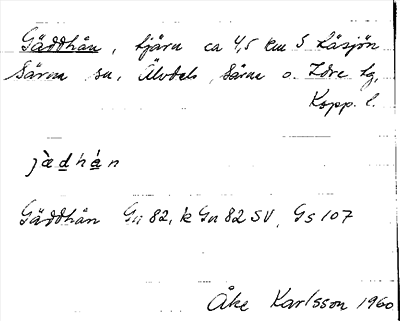 Gäddhån, tjärn ca 4,5 km S Låsjön
Särna sn, Älvdals, Särna o. Idre tg,
Kopp. l.
jàdhán
Gäddhån Gu 82, k Gu 82 SV, Gs 107
Åke Karlsson 1960